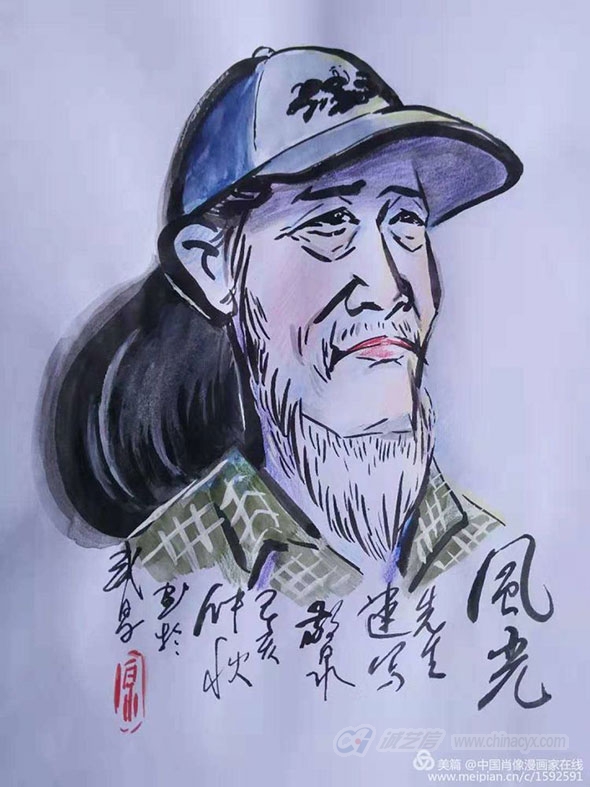 風光
先生
速写
敬泉
己亥
仲秋
画於
武昌
诚艺信 www.chinacyx.com
美篇 @中国肖像漫画家在线
www.meipian.cn/c/1592591